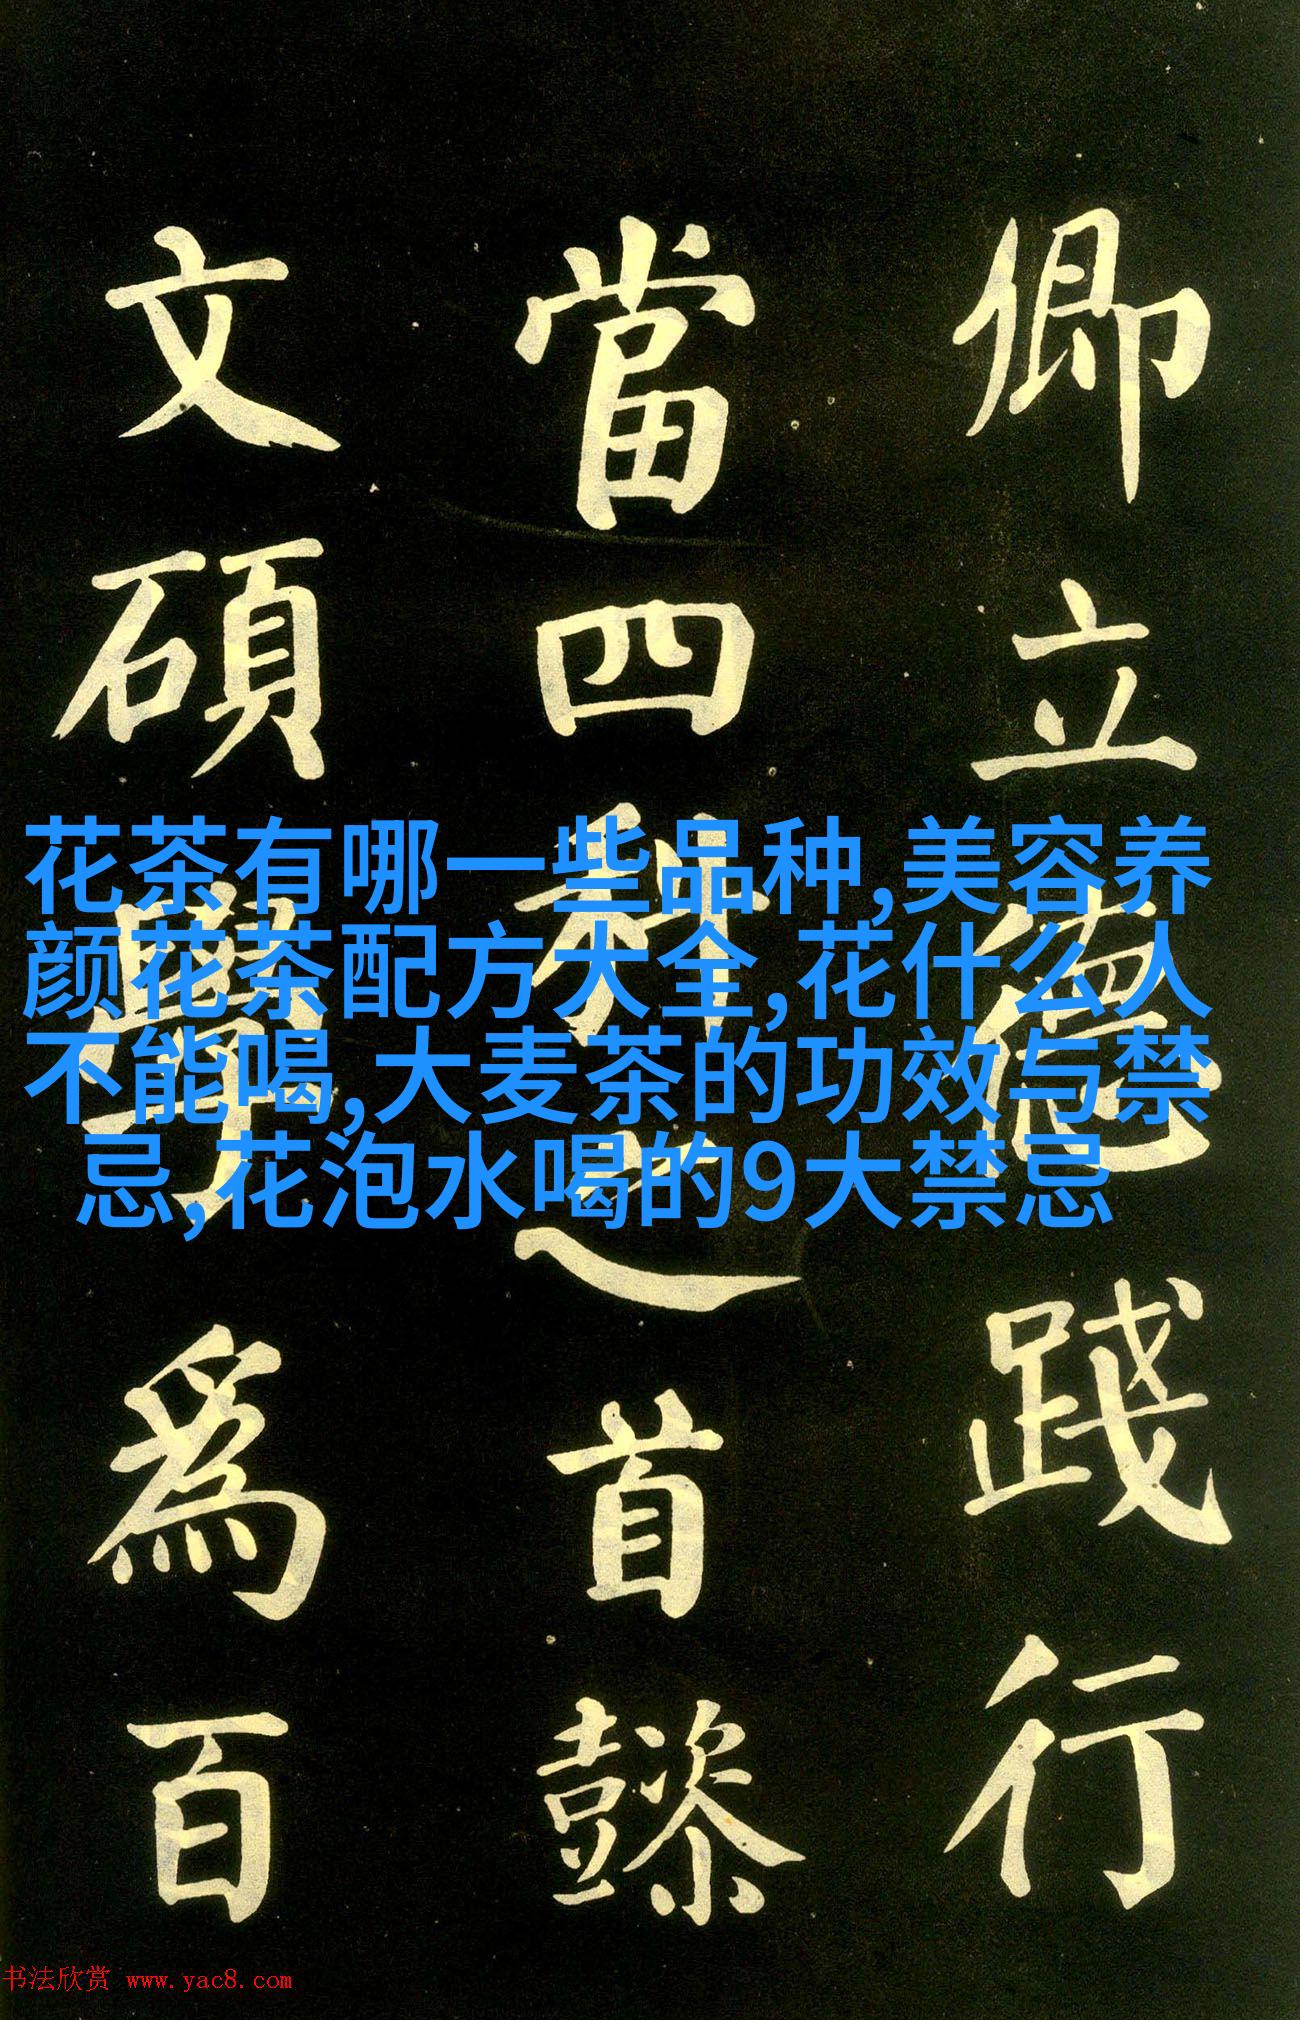 卿立德踐行
當四科之首懿
文碩學爲百
花茶有哪一些品种,美容养
颜花茶配方大全,花什么人
不能喝,大麦茶的功效与禁
忌,花泡水喝的9大禁忌
书法欣赏 www.yac8.com